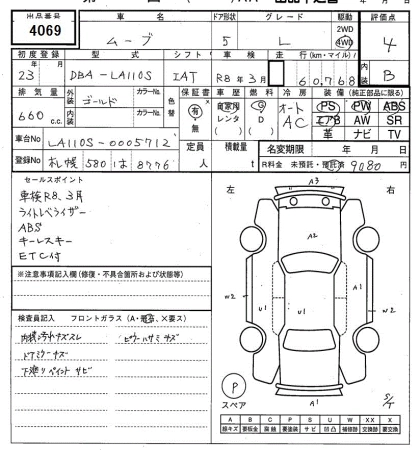 出品番号 車名 ドア形状 グレード 駆動 評価点
4069 ムーブ 5 L 2WD 4WD 4
初度登録 型式 シフト 車検 走行(km・マイル) 内装
23年 月 DBA-LA110S IAT R8年3月 60,768 B
排気量 外装 カラーNo. 色替 保証書 車歴 燃料 冷房 装備(純正部品に限る)
660 c.c. ゴールド 有・無 自家用 レンタ G D オート AC PS PW ABS
内装 カラーNo. エアB AW SR
革 ナビ TV
車台No LA110S-0005712 定員 人 積載量 t 名変期限 年 月 日
登録No 札幌 580 は 8776 R料金 未預託・預託済 9080 円
セールスポイント
車検R8、3月
ライトレベライザー
ABS
キーレスキー
ETC付
※注意事項記入欄(修復・不具合箇所および状態等)
検査員記入 フロントガラス(A・飛石、X要ス)
内装汚れキズスレ ピラーハサミキズ
ドアミラーキズ
下廻りペイント サビ
左 右
A3
A2
W2 U1 U1 A1 W2
P
スペア A1 S/T
A B C P S U W XX X
線キズ 要板金 腐蝕 要塗装 サビ 凹凸 補修跡 交換跡 要交換